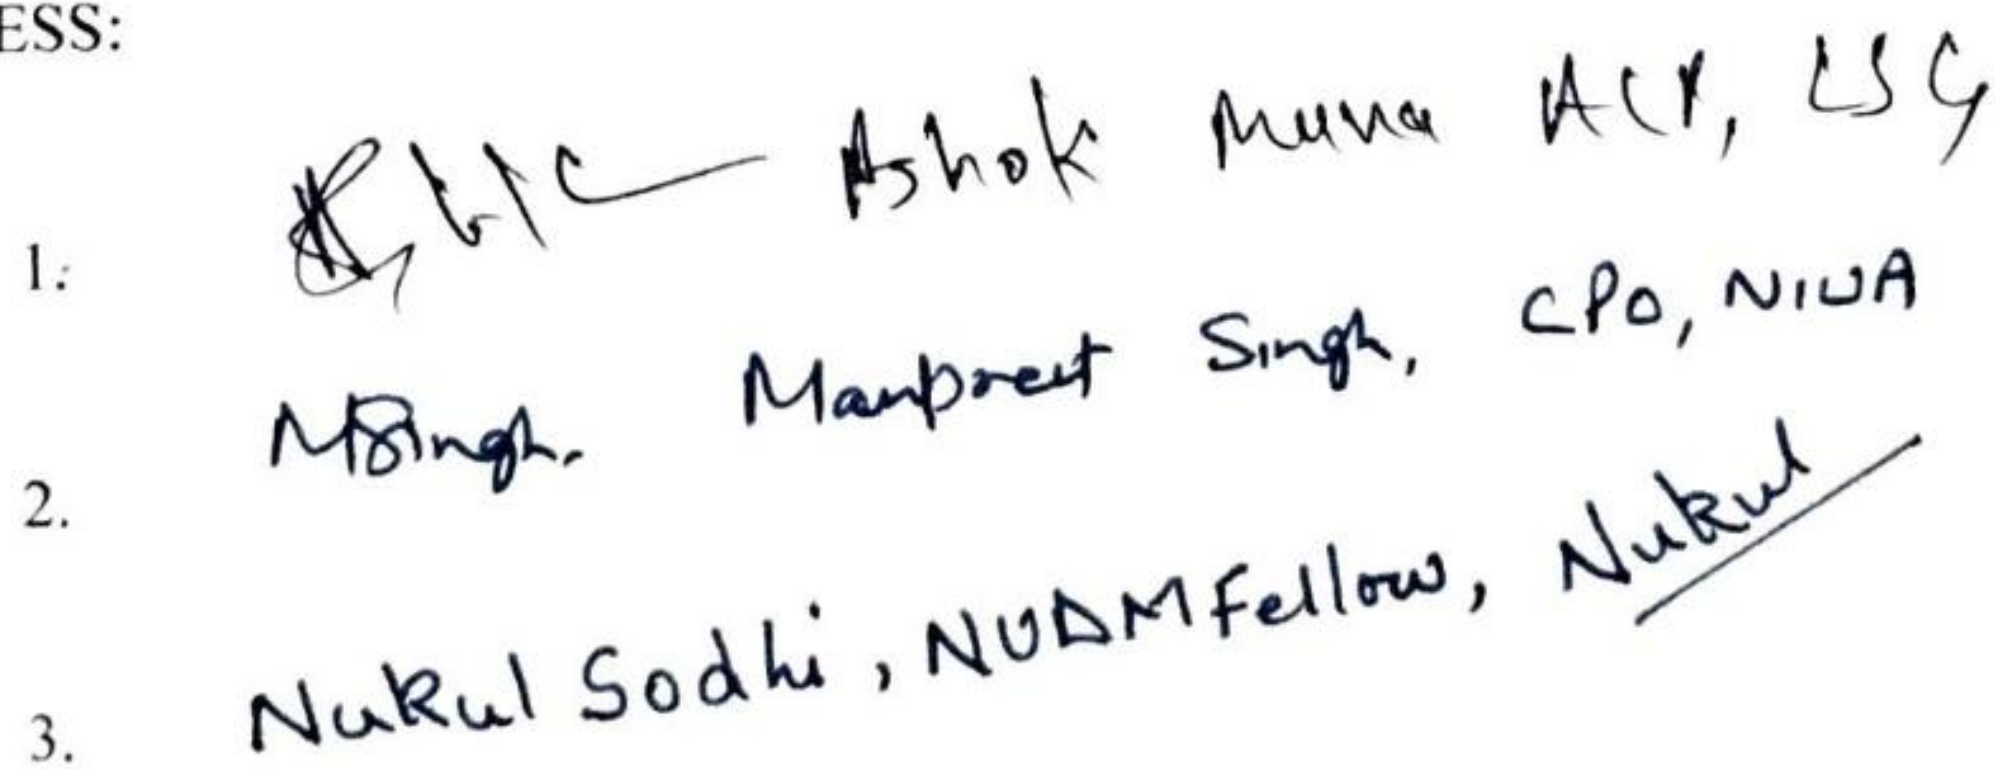 ESS:
1. Ashok
2. MSingh. Manpreet Singh, CPO, NIUA
3. Nukul Sodhi, NUDM Fellow, Nukul